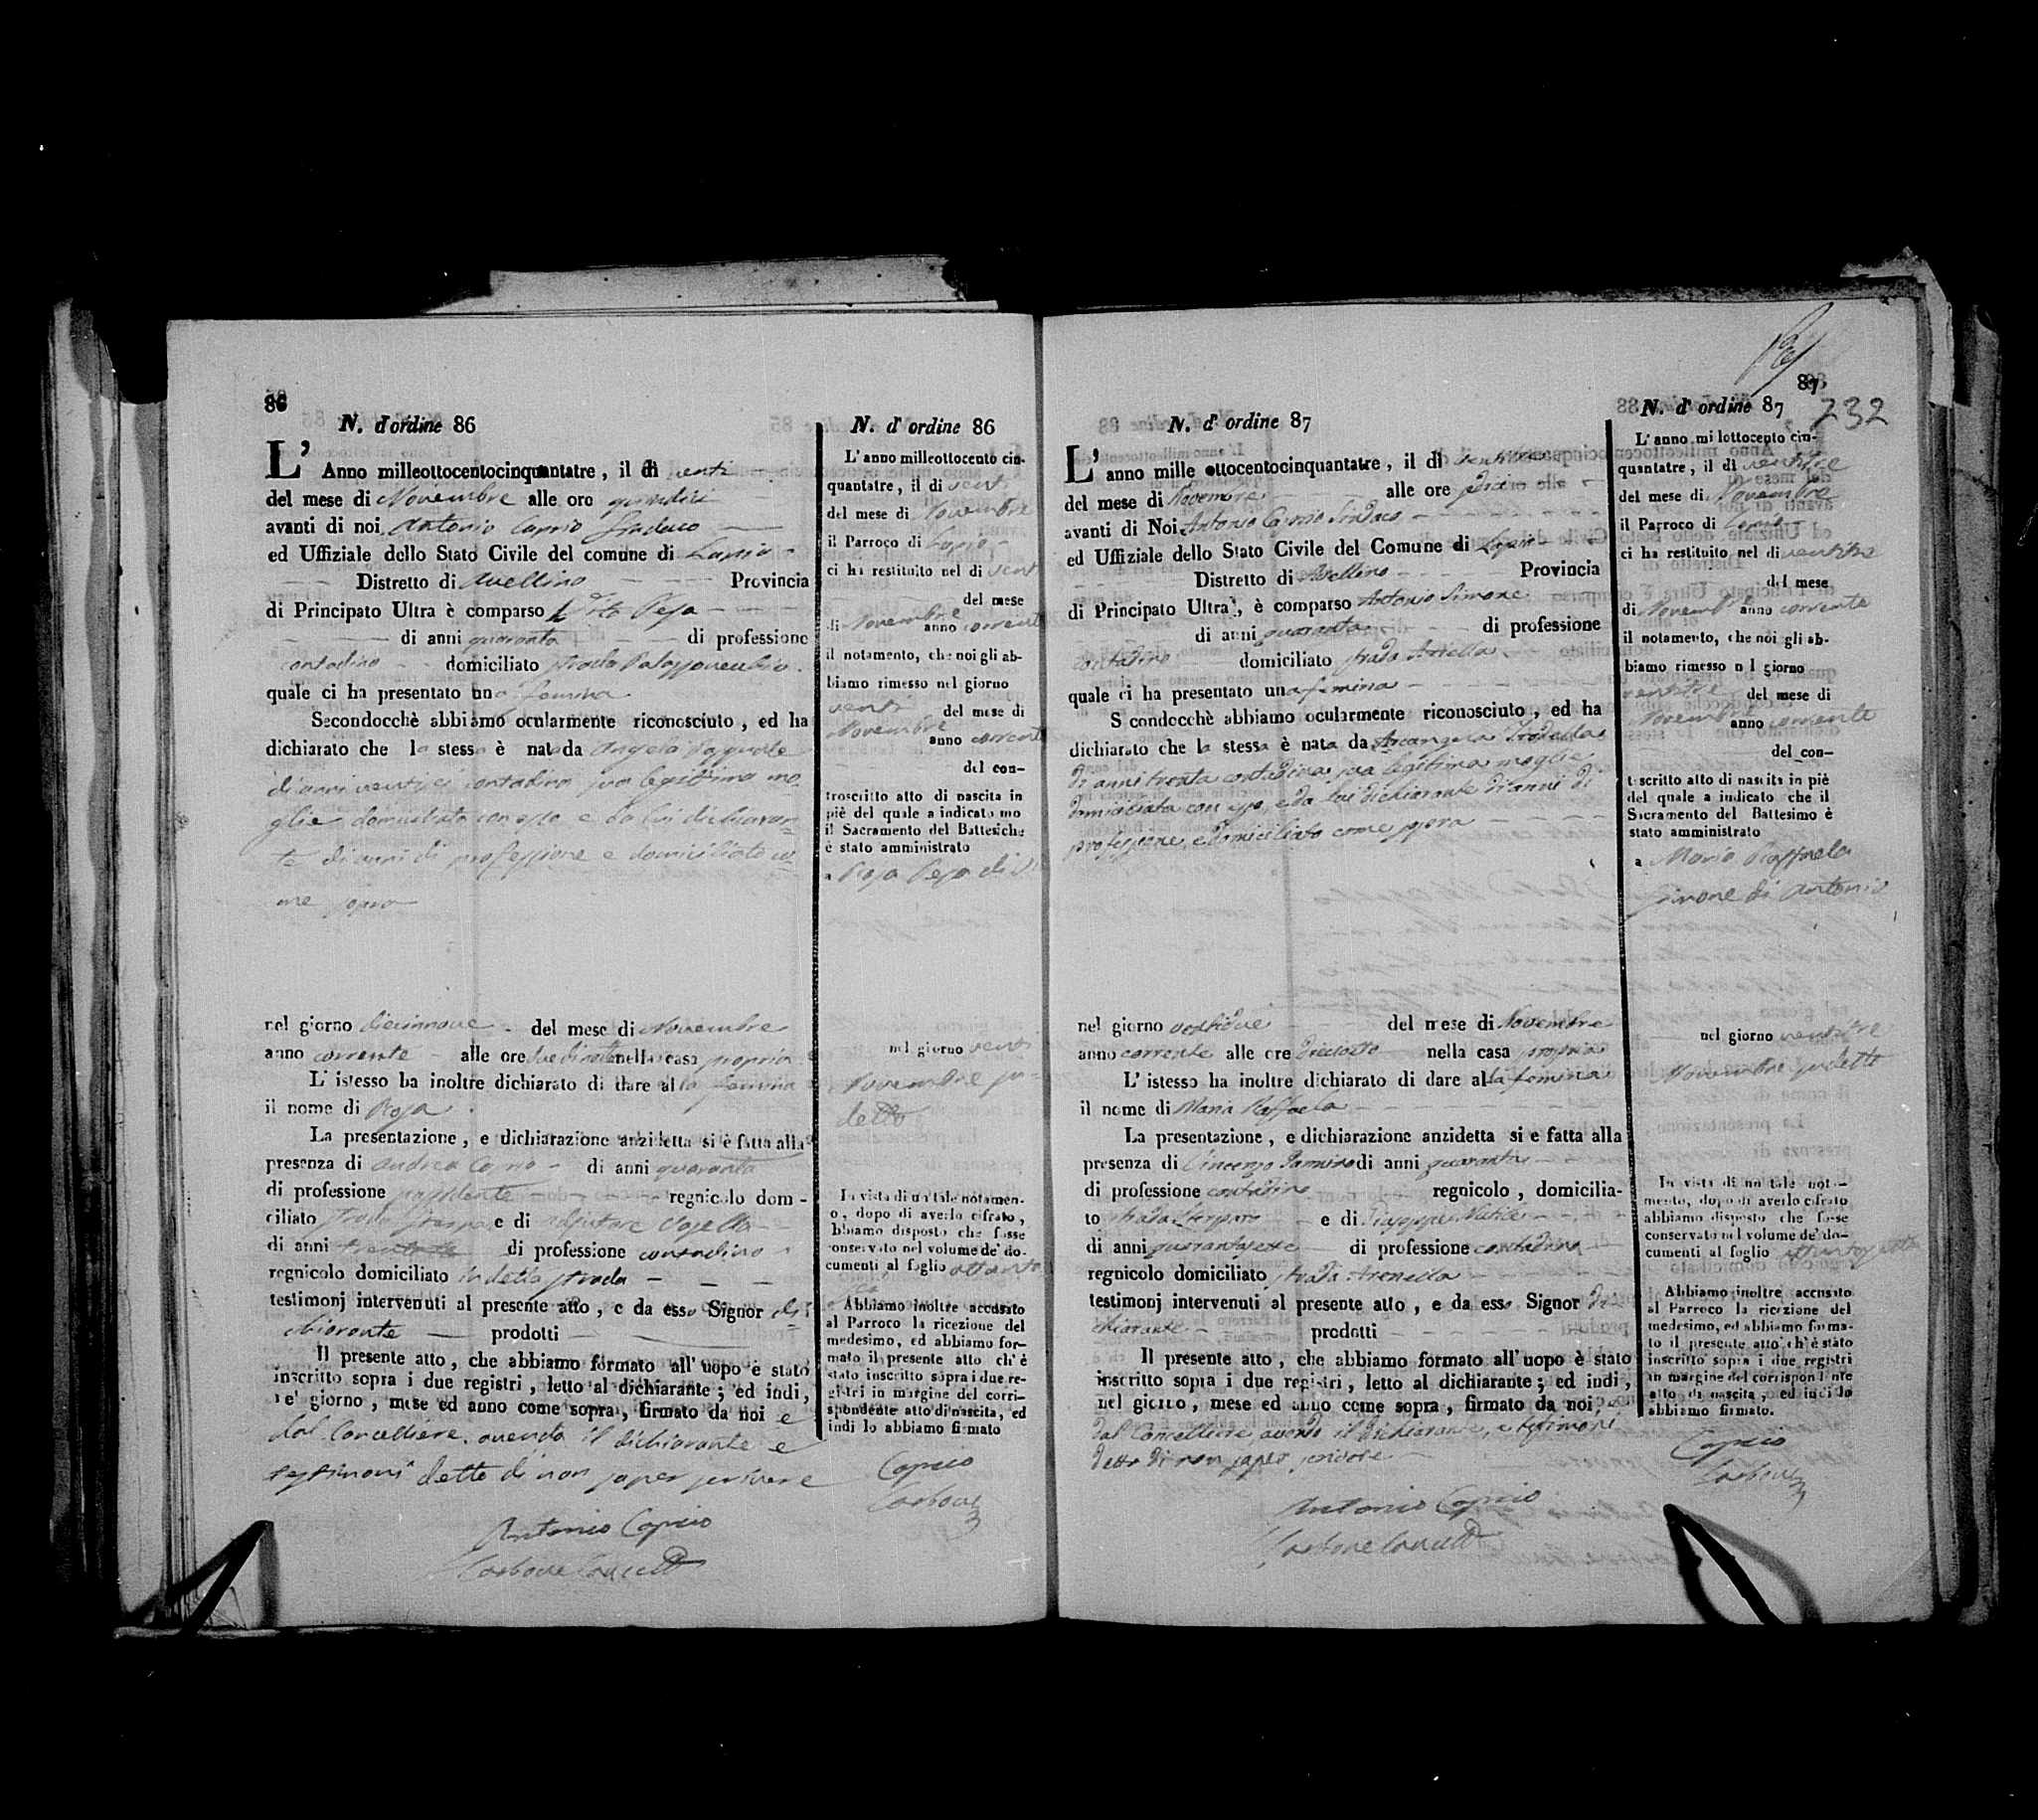 86
N. d'ordine 86
L' Anno milleottocentocinquantatre, il dì venti
del mese di Novembre alle ore quindici
avanti di noi Antonio Caprio Sindaco
ed Uffiziale dello Stato Civile del comune di Lapio
Distretto di Avellino Provincia
di Principato Ultra è comparso Vito Pesa
di anni quaranta di professione
contadino domiciliato strada Palazzovecchio
quale ci ha presentato una femina
Secondocchè abbiamo ocularmente riconosciuto, ed ha
dichiarato che la stessa è nata da Angela
di anni contadina sua legittima mo-
glie domiciliata con esso e da lui dichiaran-
te di anni di professione e domiciliato co-
me sopra
nel giorno diecinnove del mese di Novembre
anno corrente alle ore due di notte nella casa propria
L' istesso ha inoltre dichiarato di dare alla femina
il nome di Rosa
La presentazione, e dichiarazione anzidetta si è fatta alla
presenza di Andrea Caprio di anni quaranta
di professione regnicolo dom-
ciliato strada e di
di anni di professione contadino
regnicolo domiciliato in detta strada
testimonj intervenuti al presente atto, e da esso Signor di-
chiarante prodotti
Il presente atto, che abbiamo formato all'uopo è stato
inscritto sopra i due registri, letto al dichiarante; ed indi,
ne' giorno, mese ed anno come sopra, firmato da noi e
dal Cancelliere, avendo il dichiarante e
testimoni detto di non saper scrivere
Antonio Caprio
Carbone Cancell
N. d' ordine 86
L' anno milleottocento cin-
quantatre, il dì venti
del mese di Novembre
il Parroco di Lapio
ci ha restituito nel dì venti
del mese
di Novembre anno corrente
il notamento, che noi gli ab-
biamo rimesso nel giorno
venti del mese di
Novembre anno corrente
del con-
troscritto atto di nascita in
piè del quale a indicato mo
il Sacramento del Battesiche
è stato amministrato
a Rosa Pesa di
nel giorno venti
Novembre su-
detto
In vista di un tale notamen-
o, dopo di averlo cifrato,
bbiamo disposto che fosse
onservato nel volume de' do-
cumenti al foglio
Abbiamo inoltre accusato
al Parroco la ricezione del
medesimo, ed abbiamo for-
mato il presente atto ch'è
stato inscritto sopra i due re-
gistri in margine del corri-
spondente atto di nascita, ed
indi lo abbiamo firmato
Caprio
Carbone
87
232
N. d' ordine 87
L' anno mille ottocentocinquantatre, il dì ventitre
del mese di Novembre alle ore
avanti di Noi Antonio Caprio Sindaco
ed Uffiziale dello Stato Civile del Comune di Lapio
Distretto di Avellino Provincia
di Principato Ultra, è comparso Antonio Simone
di anni quaranta di professione
contadino domiciliato strada Arenella
quale ci ha presentato una femina
S condocchè abbiamo ocularmente riconosciuto, ed ha
dichiarato che la stessa è nata da Arcangela
di anni trenta contadina sua legitima moglie
domiciliata con esso, e da lui dichiarante di anni di
professione, e domiciliato come sopra
nel giorno ventidue del mese di Novembre
anno corrente alle ore diciotto nella casa propria
L' istesso ha inoltre dichiarato di dare alla femina
il nome di Maria Raffaela
La presentazione, e dichiarazione anzidetta si e fatta alla
presenza di Vincenzo di anni quaranta
di professione contadino regnicolo, domicilia-
to strada e di Giuseppe
di anni quarantasette di professione contadino
regnicolo domiciliato strada Arenella
testimonj intervenuti al presente atto, e da esso Signor di-
chiarante prodotti
Il presente atto, che abbiamo formato all'uopo è stato
inscritto sopra i due registri, letto al dichiarante; ed indi,
nel giorno, mese ed anno come sopra, firmato da noi,
dal Cancelliere, avendo il dichiarante, e testimoni
detto di non saper scrivere
Antonio Caprio
Carbone Cancell
N. d' ordine 87
L' anno mi lottocento cin-
quantatre, il dì ventitre
del mese di Novembre
il Parroco di Lapio
ci ha restituito nel dì ventitre
del mese
di Novembre anno corrente
il notamento, che noi gli ab-
biamo rimesso n l giorno
ventitre del mese di
Novembre anno corrente
del con-
troscritto atto di nascita in piè
del quale a indicato che il
Sacramento del Battesimo è
stato amministrato
a Maria Raffaela
Simone di Antonio
nel giorno ventitre
Novembre sudetto
In vista di un tale nota-
mento, dopo di averlo cifrato
abbiamo disposto che fosse
conservato nel volume de' do-
cumenti al foglio
Abbiamo inoltre accusato
al Parroco la ricezione del
medesimo, ed abbiamo forma-
to il presente atto ch'è stato
inscritto sopra i due registri
in margine del corrispondente
atto di nascita, ed indi lo
abbiamo firmato.
Caprio
Carbone